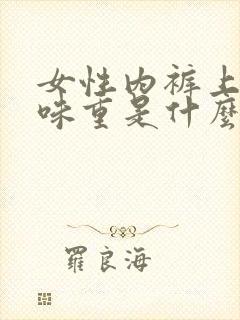 女性内裤上
味重是什麼
羅良海